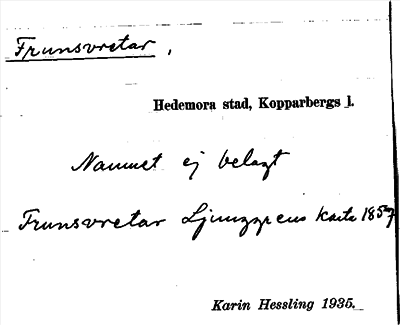 Frunsvretar,
Hedemora stad, Kopparbergs l.
Namnet ej belagt
Frunsvretar Ljunggrens karta 1857
Karin Hessling 1935.